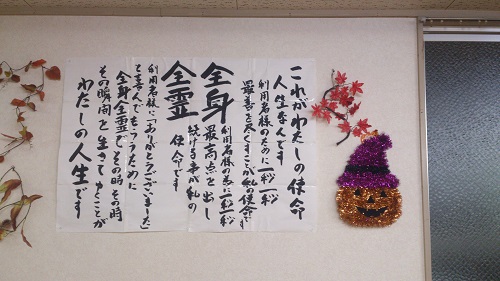 これがわたしの使命
人生なんです
利用者様のために一秒一秒
最善を尽くすことが私の使命です
全身
利用者様の為に一秒一秒
最高点を出し
続ける事が私の
使命です
全霊
利用者様に「ありがとうございました」
と喜んでもらうために
全身全霊で、その時その時
その瞬間を生きてゆくことが
わたしの人生です